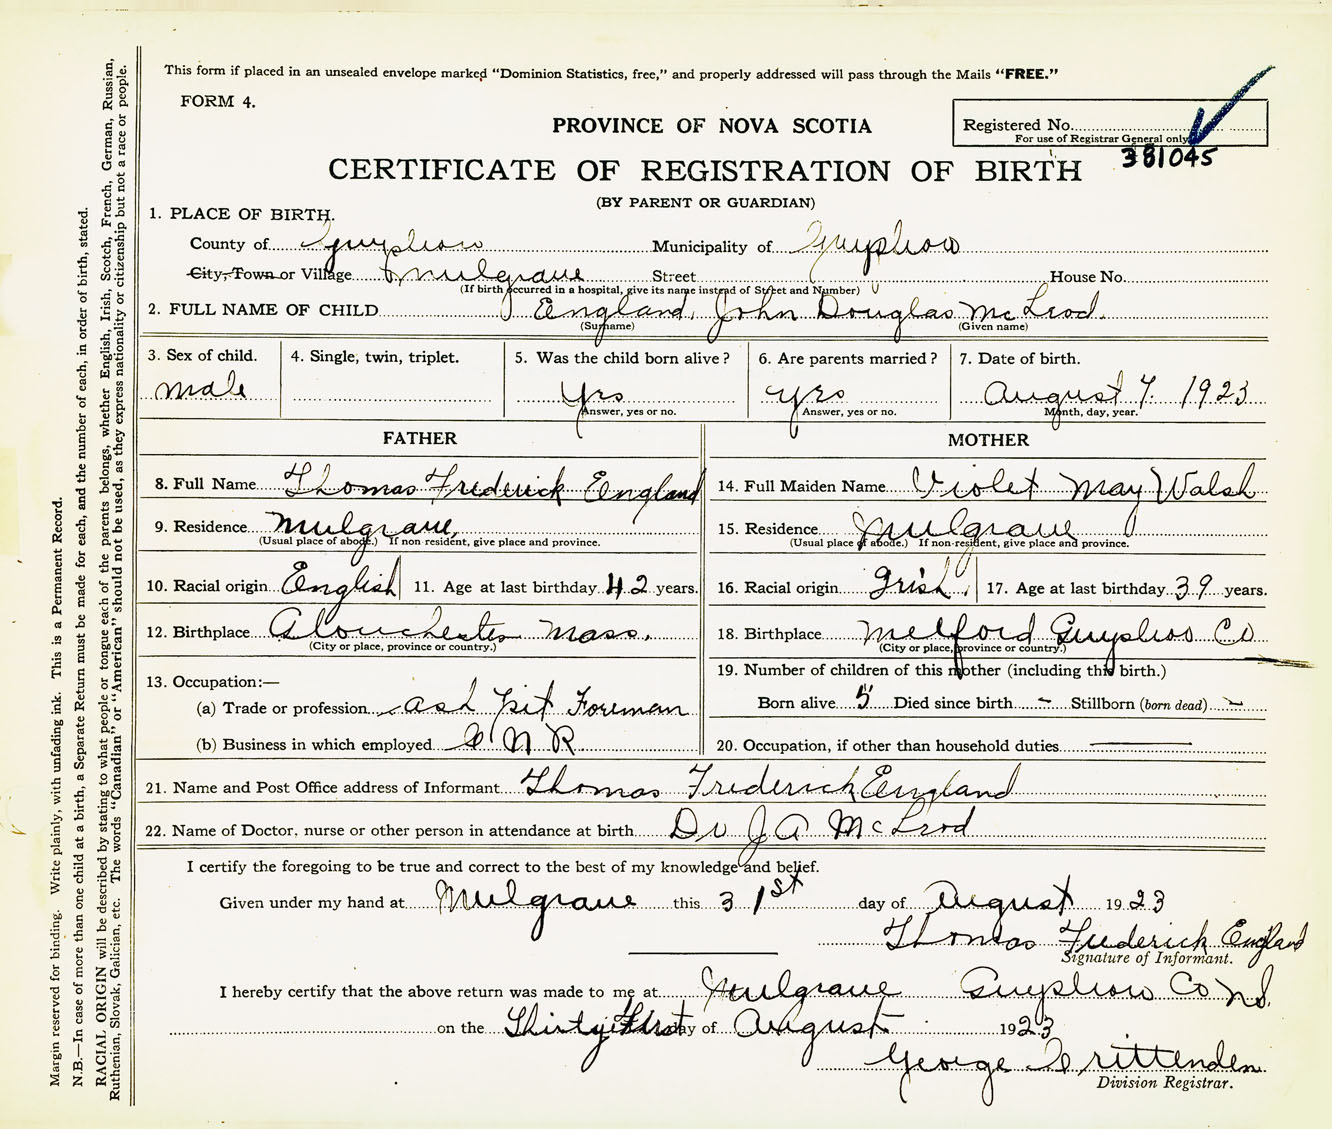 This form if placed in an unsealed envelope marked “Dominion Statistics, free,” and properly addressed will pass through the Mails “FREE.”
FORM 4.
Registered No.
For use of Registrar General only
381045
PROVINCE OF NOVA SCOTIA
CERTIFICATE OF REGISTRATION OF BIRTH
(BY PARENT OR GUARDIAN)
1. PLACE OF BIRTH.
County of Guysboro Municipality of Guysboro
City, Town or Village Mulgrave Street House No.
(If birth occurred in a hospital, give its name instead of Street and Number)
2. FULL NAME OF CHILD England, John Douglas McLeod.
(Surname) (Given name)
3. Sex of child. 4. Single, twin, triplet. 5. Was the child born alive? 6. Are parents married? 7. Date of birth.
male Yes yes August 7. 1923
Answer, yes or no. Answer, yes or no. Month, day, year.
FATHER MOTHER
8. Full Name Thomas Frederick England 14. Full Maiden Name Violet May Walsh
9. Residence Mulgrave, 15. Residence Mulgrave
(Usual place of abode.) If non-resident, give place and province. (Usual place of abode.) If non-resident, give place and province.
10. Racial origin English 11. Age at last birthday 42 years. 16. Racial origin Irish, 17. Age at last birthday 39 years.
12. Birthplace Glouchester Mass. 18. Birthplace Melford Guysboro Co
(City or place, province or country.) (City or place, province or country.)
13. Occupation:— 19. Number of children of this mother (including this birth.)
(a) Trade or profession ash pit Foreman Born alive 5 Died since birth – Stillborn (born dead) –
(b) Business in which employed C N R 20. Occupation, if other than household duties
21. Name and Post Office address of Informant Thomas Frederick England
22. Name of Doctor, nurse or other person in attendance at birth Dr J A McLeod
I certify the foregoing to be true and correct to the best of my knowledge and belief.
Given under my hand at Mulgrave this 31st day of August 1923
Thomas Frederick England
Signature of Informant.
I hereby certify that the above return was made to me at Mulgrave Guysboro Co NS.
on the Thirty First day of August 1923
George Crittenden
Division Registrar.
Margin reserved for binding. Write plainly, with unfading ink. This is a Permanent Record.
N.B.—In case of more than one child at a birth, a Separate Return must be made for each, and the number of each, in order of birth, stated.
RACIAL ORIGIN will be described by stating to what people or tongue each of the parents belongs, whether English, Irish, Scotch, French, German, Russian,
Ruthenian, Slovak, Galician, etc. The words “Canadian” or “American” should not be used, as they express nationality or citizenship but not a race or people.